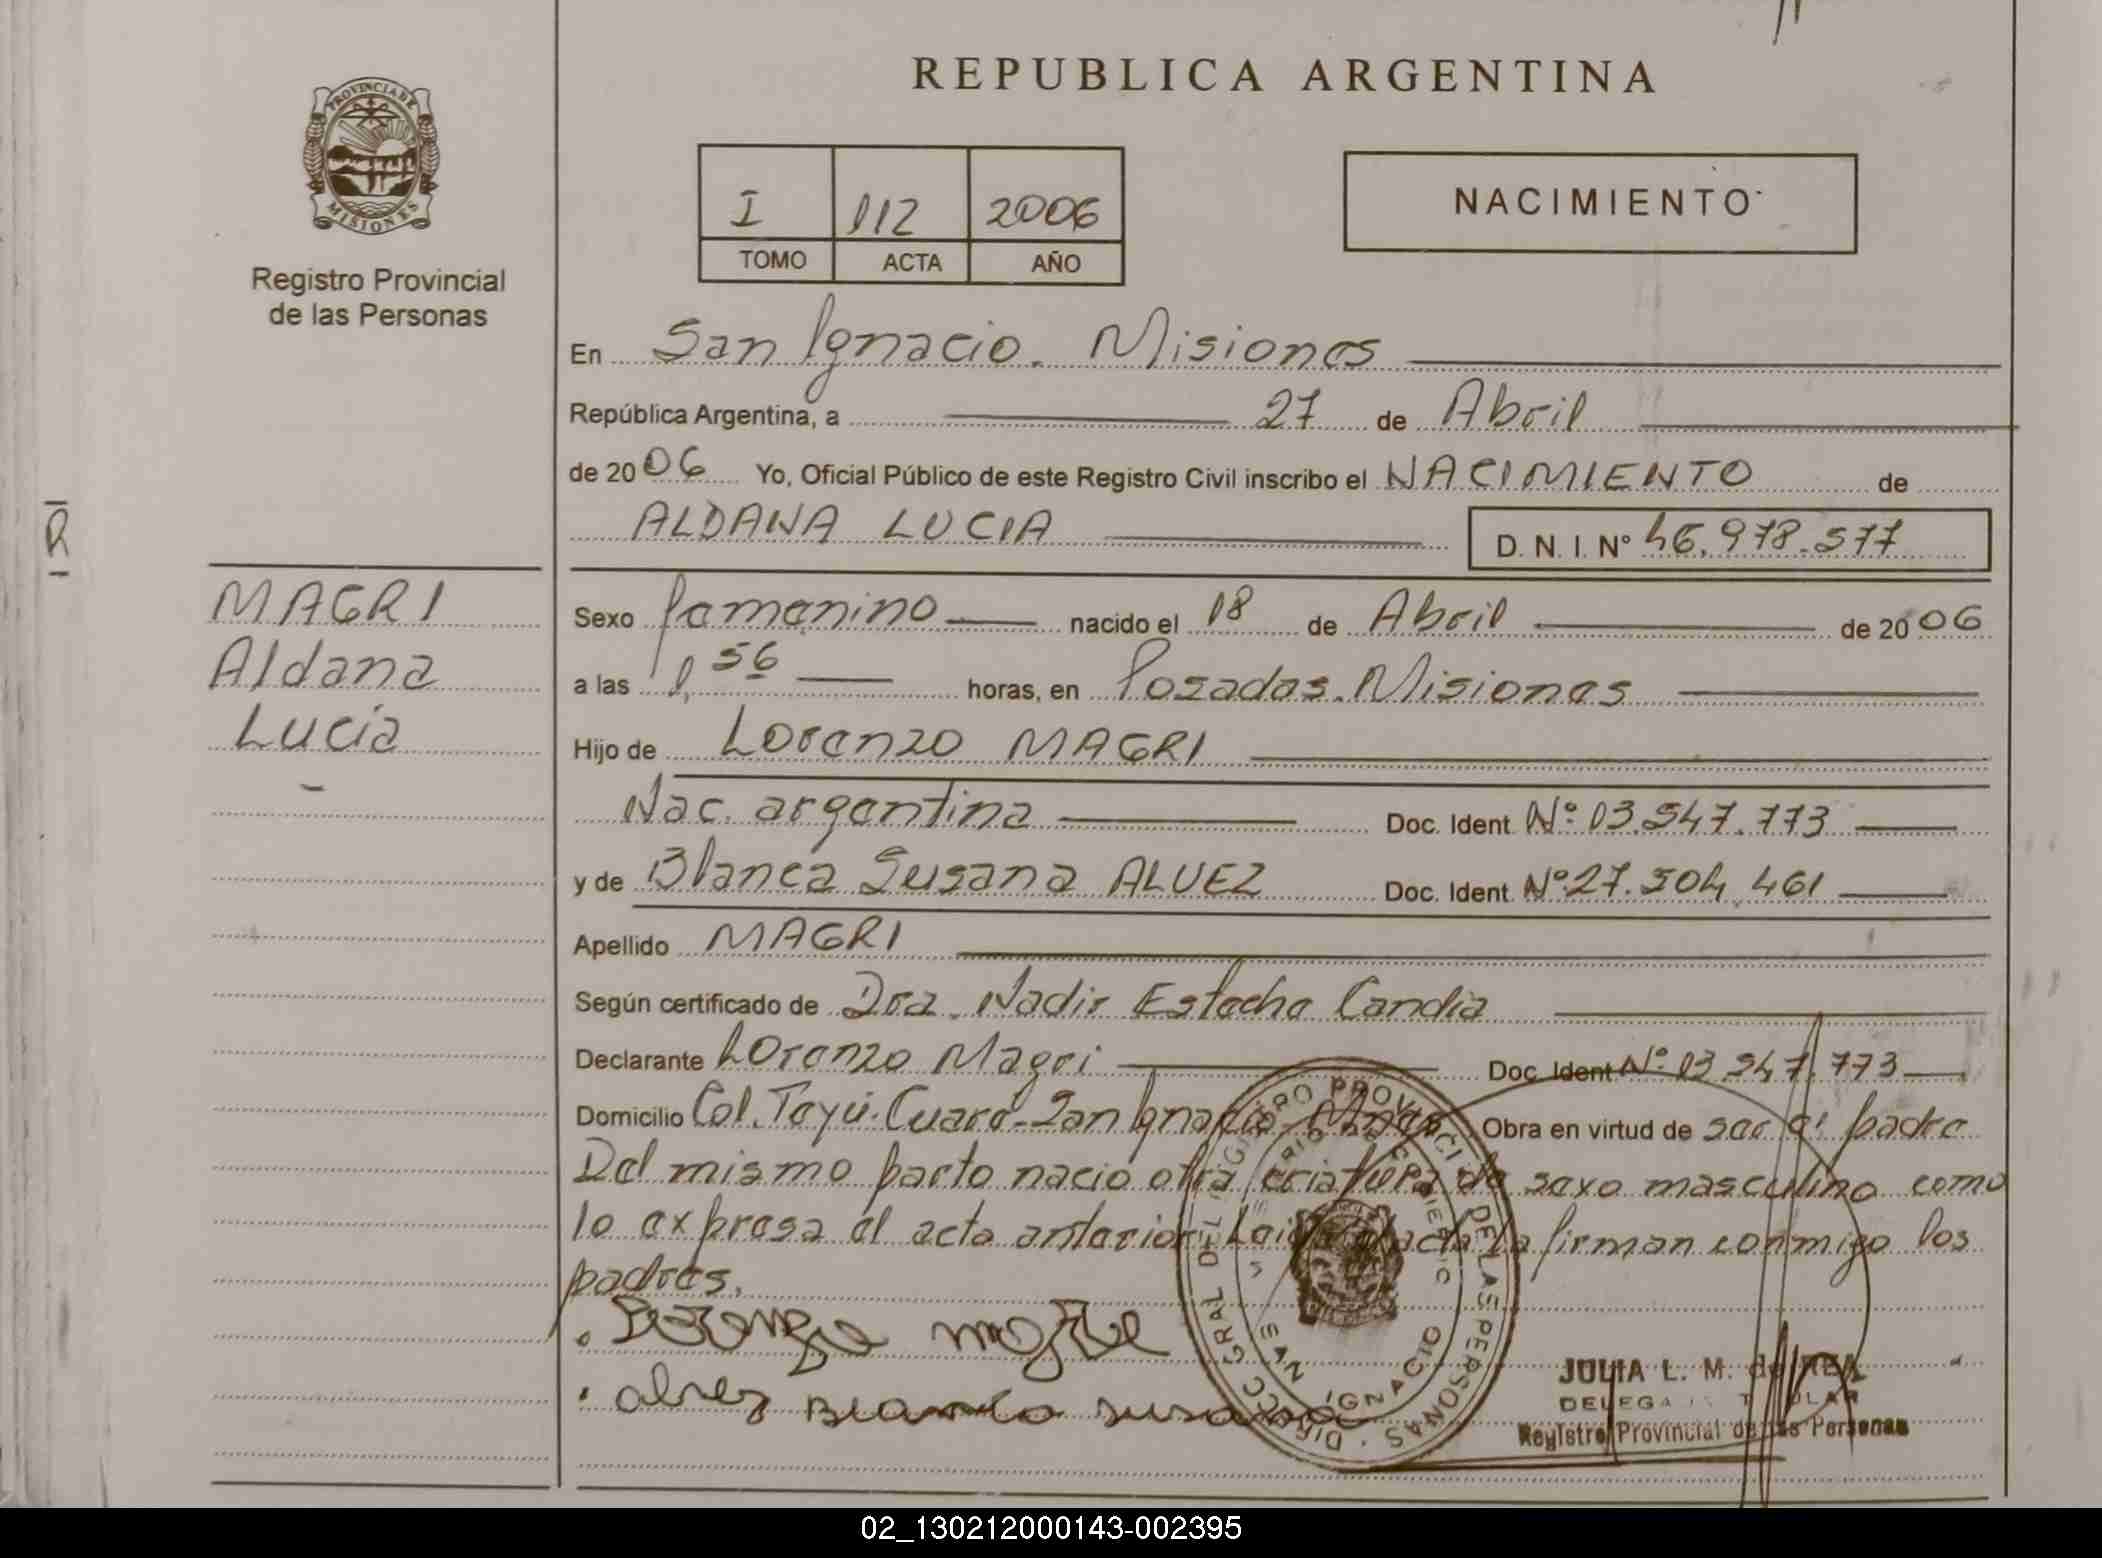 REPUBLICA ARGENTINA
PROVINCIA DE
MISIONES
Registro Provincial
de las Personas
I 112 2006
TOMO ACTA AÑO
NACIMIENTO
En San Ignacio. Misiones
República Argentina, a 27 de Abril
de 2006 Yo, Oficial Público de este Registro Civil inscribo el NACIMIENTO de
ALDANA LUCIA D. N. I. Nº 46.978.577
R
MAGRI
Aldana
Lucia
Sexo femenino nacido el 18 de Abril de 2006
a las 1,56 horas, en Posadas. Misiones
Hijo de Lorenzo MAGRI
Nac. argentina Doc. Ident. Nº 03.547.773
y de Blanca Susana ALVEZ Doc. Ident. Nº 27.504.461
Apellido MAGRI
Según certificado de Dra. Nadir Candia
Declarante Lorenzo Magri Doc. Ident Nº 03.547.773
Domicilio Col. Teyú-Cuaré-San Ignacio-Mnes Obra en virtud de ser el padre
Del mismo parto nació otra criatura de sexo masculino como
lo expresa el acta anterior. Leida el acta la firman conmigo los
padres.
alvez Blanca Susana
DIRECC. GRAL DEL REGISTRO PROVINCIAL DE LAS PERSONAS
SAN IGNACIO
JULIA L. M. de REA
DELEGADA TITULAR
Registro Provincial de las Personas
02_130212000143-002395